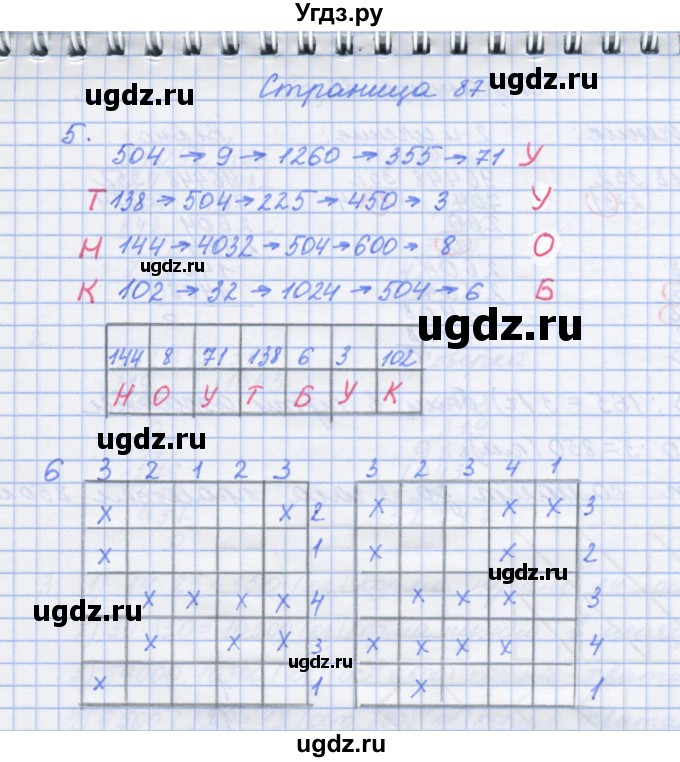 Угдз.ру
Страница 87
ugdz.ru
5.
504 → 9 → 1260 → 355 → 71 У
Т 138 → 504 → 225 → 450 → 3 У
Н 144 → 4032 → 504 → 600 → 8 О
ugdz.ru
К 102 → 32 → 1024 → 504 → 6 Б
ugdz.ru
144 8 71 138 6 3 102
Н О У Т Б У К
ugdz.ru
6 3 2 1 2 3 3 2 3 4 1
x x 2 x x x 3
x 1 x x 2
ugdz.ru
x x x x 4 x x x 3
ugdz.ru
x x x 3 x x x x 4
ugdz.ru
x 1 x 1
ugdz.ru